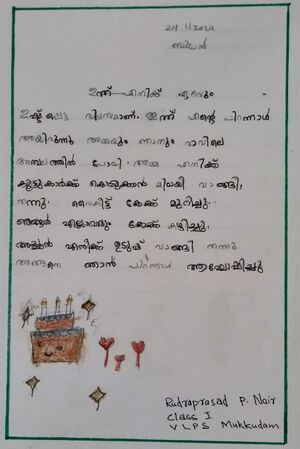 24 4 2024
ബുധൻ
ഇന്ന് എനിക്ക് ഏറ്റവും
ഇഷ്ടപ്പെട്ട ദിവസമാണ്. ഇന്ന് എന്റെ പിറന്നാൾ
ആയിരുന്നു. അമ്മയും ഞാനും രാവിലെ
അമ്പലത്തിൽ പോയി. അമ്മ എനിക്ക്
കൂട്ടുകാർക്ക് കൊടുക്കാൻ മിഠായി വാങ്ങി,
തന്നു. വൈകിട്ട് കേക്ക് മുറിച്ചു.
ഞങ്ങൾ എല്ലാവരും കേക്ക് കഴിച്ചു.
അച്ഛൻ എനിക്ക് ഉടുപ്പ് വാങ്ങി തന്നു
അങ്ങനെ ഞാൻ പിറന്നാൾ ആഘോഷിച്ചു
Rudraprasad P. Nair
Class I
VLPS Mukkudam